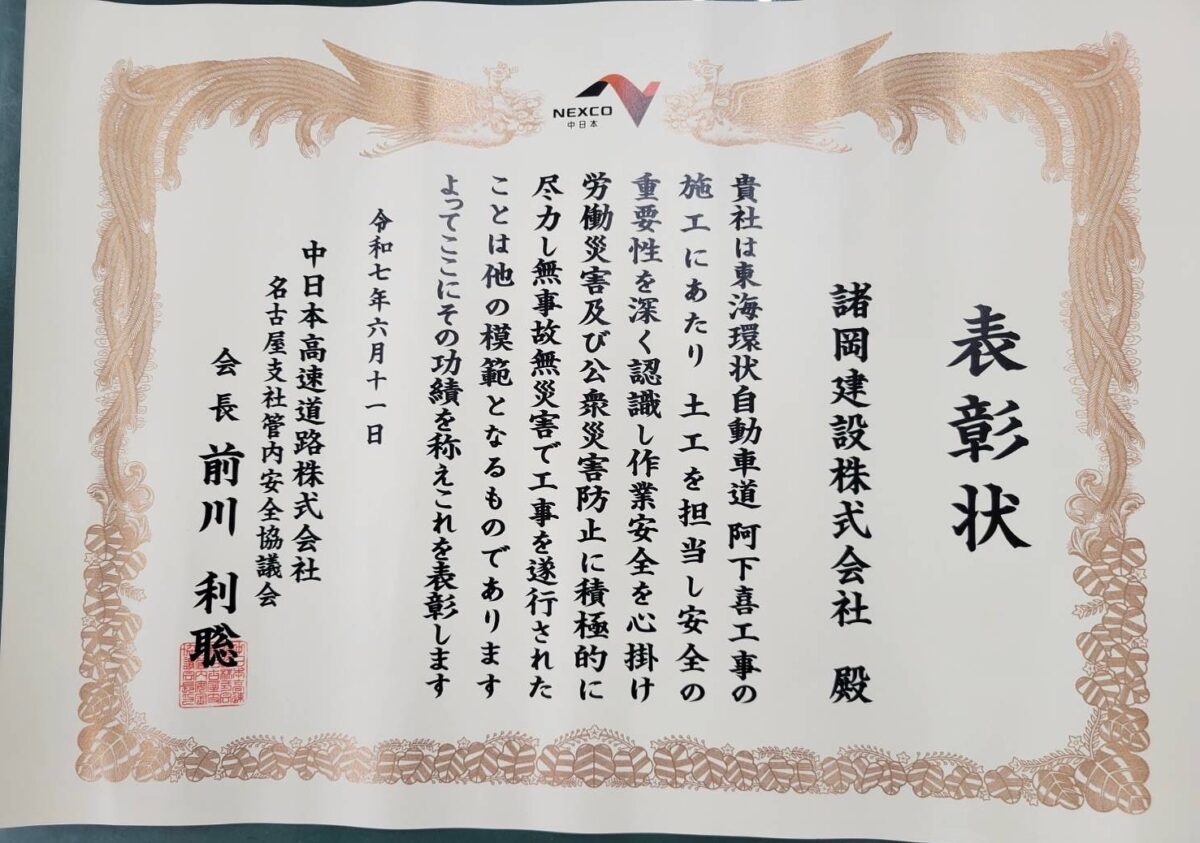 NEXCO
中日本
表彰状
諸岡建設株式会社 殿
貴社は東海環状自動車道 阿下喜工事の
施工にあたり 土工を担当し安全の
重要性を深く認識し作業安全を心掛け
労働災害及び公衆災害防止に積極的に
尽力し無事故無災害で工事を遂行された
ことは他の模範となるものであります
よってここにその功績を称えこれを表彰します
令和七年六月十一日
中日本高速道路株式会社
名古屋支社管内安全協議会
会長 前川 利聡